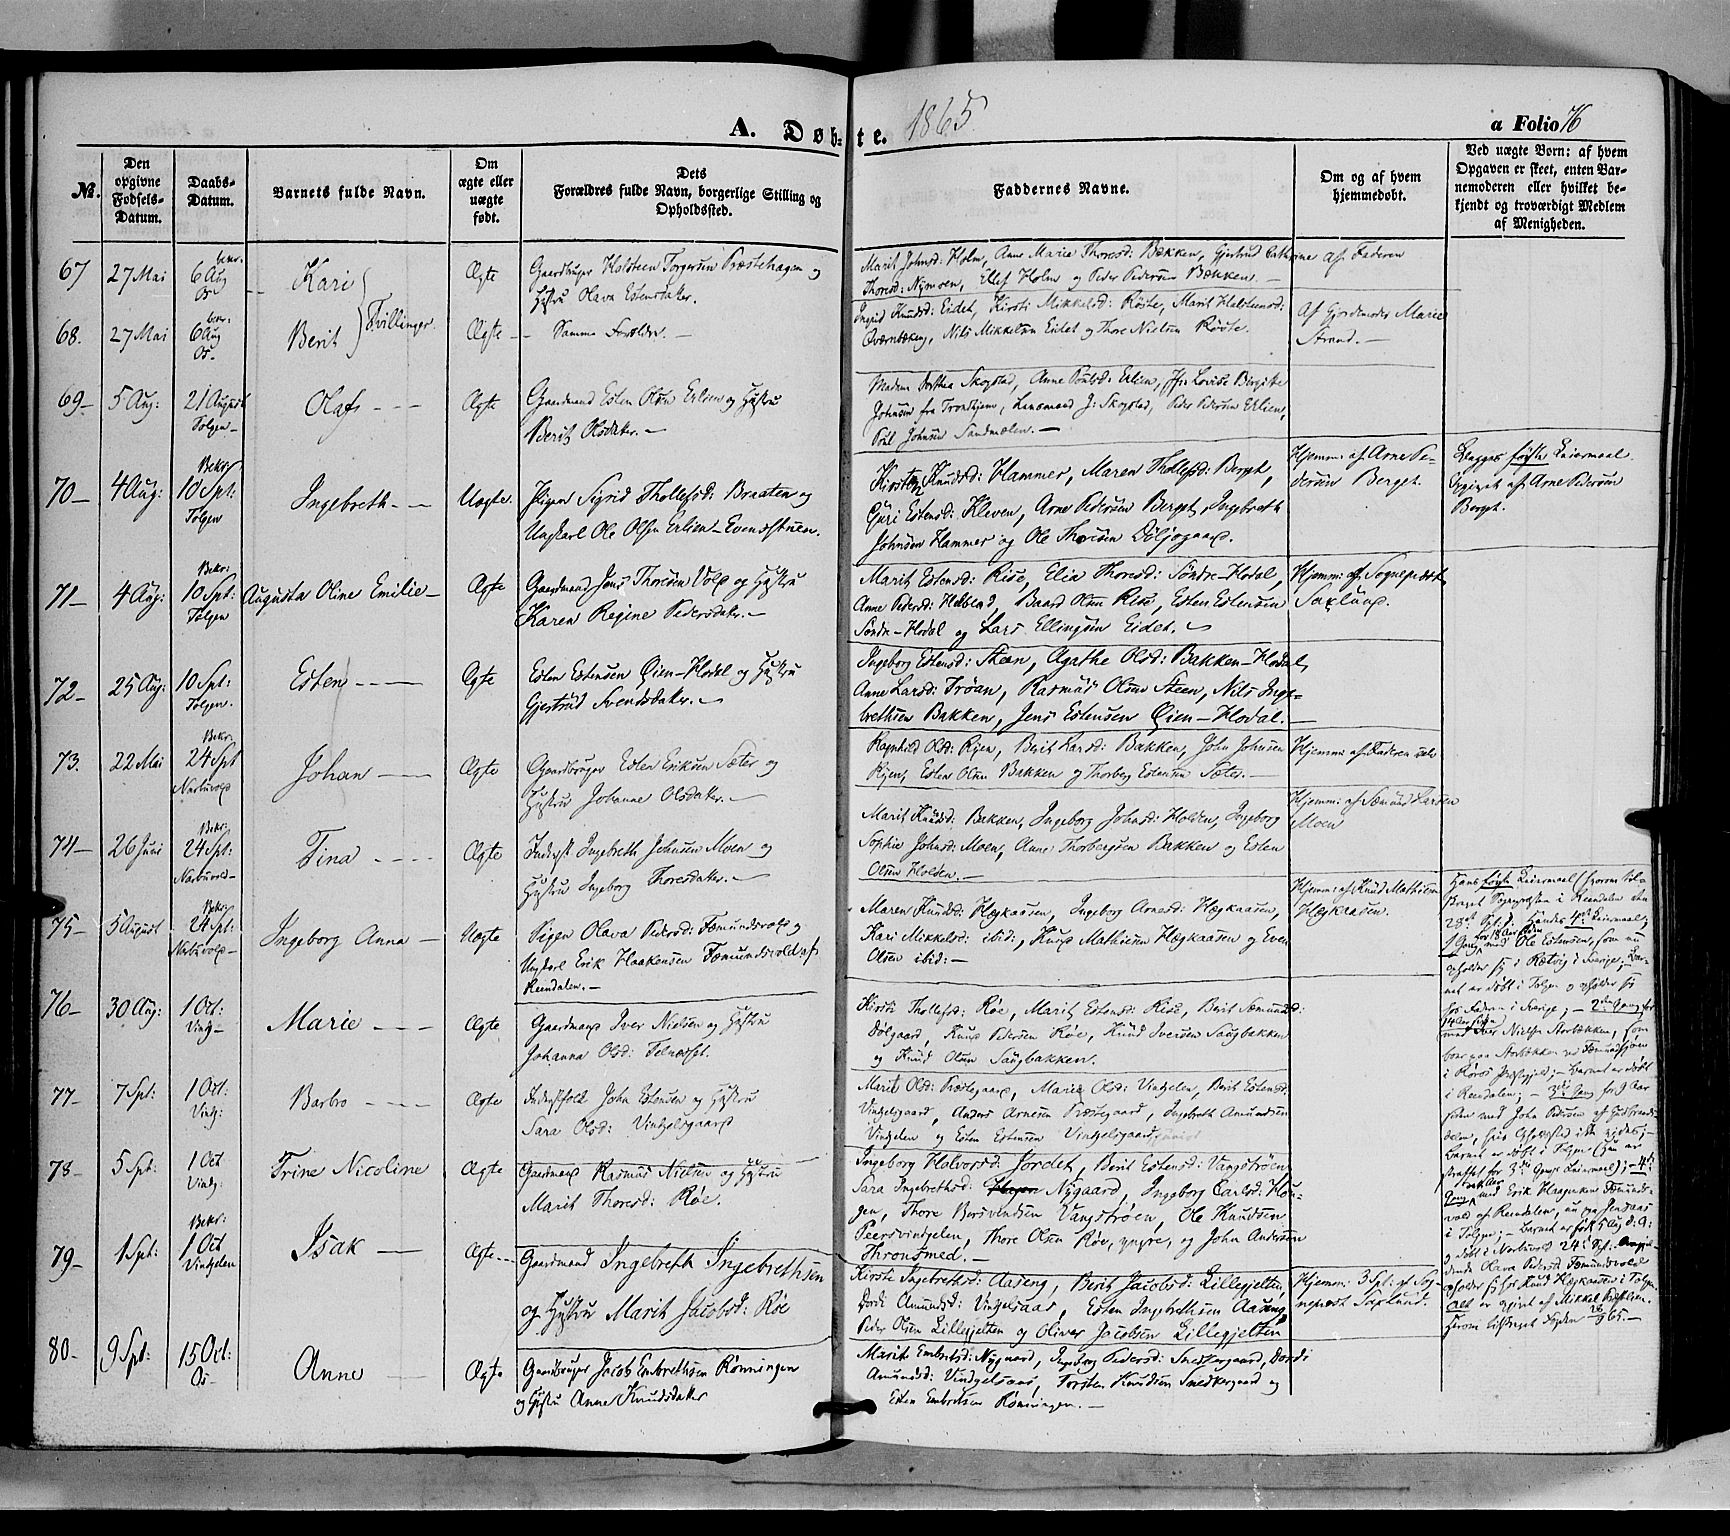 A. Døb-
te. 1865
a Folio 76
No.
Den opgivne Fødsels-Datum.
Daabs-Datum.
Barnets fulde Navn.
Om ægte eller uægte født.
Dets
Forældres fulde Navn, borgerlige Stilling og
Opholdssted.
Faddernes Navne.
Om og af hvem
hjemmedøbt.
Ved uægte Børn: af hvem
Opgaven er skeet, enten Bar-
nemoderen eller hvilket be-
kjendt og troværdigt Medlem
af Menigheden.
67 27 Mai bekr. 6 Aug Os Kari Ægte Gaardbruger Holsteen Torgersen Præstehagen og
Hustru Olava Estensdatter.
Marit Johnsd: Holm, Anne Marie Thoresd: Bækken, Gjertrud Cathrine
Thoresd: Nymoen, Ellef Holm og Peder Pedersen Bækken.
af Faderen
Tvillinger.
68. 27 Mai bekr: 6 Aug Os. Berit Ægte Samme Forældre.
Ingrid Knudsd: Eidet, Kirsti Mikkelsd: Røste, Marit Halsteensd:
Qværnbækken, Nils Mikkelsen Eidet og Thore Nielsen Røste.
Af Gjordemoder Marie
Strand.
69 5 Aug: 21 August Tolgen Olaf Ægte Gaardmand Esten Olsen Erlien og Hustru
Berit Olsdatter.
Madam Dorthea Skogstad, Anne Poulsd: Erlien, Jfr: Lovise Bergitte
Johnsen fra Trondhjem, Lensmand J: Skogstad, Peder Pedersen Erlien,
Poul Johnsen Sandmælen.
70 4 Aug: Bekr. 10 Spt: Tolgen Ingebreth Uægte. Pigen Sigrid Thollefsd: Braaten og
Ungkarl Ole Olsen Erlien-Evensstuen.
Kirsten Knudsd: Hammer, Maren Thollefsd: Berget,
Guri Estensd: Kleven, Arne Pedersen Berget, Ingebreth
Johnsen Hammer og Ole Thoresen
Hjemm: af Arne Pe-
dersen Berget.
Begges første Leiermaal.
Opgivet af Arne Pedersen
Berget.
71 4 Aug: Bekr: 10 Spt: Tolgen Augusta Oline Emilie Ægte Gaardmand Jens Thoresen Vold og Hustru
Karen Regine Pedersdatter.
Marit Estensd: Rise, Elin Thoresd: Søndre-Hodal,
Anne Pedersd: Baard Olsen Rise, Esten Estensen
Søndre-Hodal og Lars Ellingsen Eidet.
Hjemm: af Sognepræst
Saxlund.
72 25 Aug: 10 Spt: Tolgen. Esten Ægte Esten Estensen Øien-Hodal og Hustru
Gjertrud Svendsdatter.
Ingeborg Estensd: Steen, Agathe Olsd: Bakken-Hodal,
Anne Larsd: Trøan, Rasmus Olsen Steen, Nils Inge-
brethsen Bakken, Jens Estensen Øien-Hodal.
73. 22 Mai Bekr: 24 Spt Narbuvold Johan Ægte Gaardbruger Esten Eriksen Sæter og
Hustru Johanne Olsdatter.
Ragnhild Olsd: Ryen, Berit Larsd: Bakken, John Johnsen
Ryen, Esten Olsen Bakken og Thorberg Estensen Sæter.
Hjemm: af Faderen
74 26 Juni Bekr: 24 Spt: Narbuvold Tina Ægte Inderst Ingebreth Johnsen Moen og
Hustru Ingeborg Thoresdatter.
Marit Knudsd: Bakken, Ingeborg Johnsd: Holden, Ingeborg
Sophie Johnsd: Moen, Arne Thorbergsen Bakken og Esten
Olsen Holden.
Hjemm: af Sæmund Larsen
Moen
75 5 August Bekr: 24 Spt: Narbuvold Ingeborg Anna Uægte Pigen Olava Pedersd: Fæmundsvold og
Ungkarl Erik Haakensen Fæmundsvold af
Rendalen.
Maren Knudsd: Hægkaasen, Ingeborg Arnesd: Hægkaasen,
Kari Mikkelsd: ibid:, Knud Mathisen Hægkaasen og Even
Olsen ibid:
Hjemm: af Knud Mathisen
Hægkaasen.
Hans første Leiermaal
Sognepræsten i Rendalen
Spt.), hendes 4de Leiermaal,
1 Gang med Ole Estensen, som nu
opholder sig i Rætvig i Sverige; Bar-
net er døbt i Tolgen og opholder sig
hos Faderen i Sverige; 2den Gang for
14 Aar siden med Iver Nielsen Storbækken, som
boer paa Storbækken ved Fæmundsjøen
i Røros Præstegjeld; Barnet er døbt
i Rendalen; 3die Gang for 9 Aar
siden med John Pedersen af Gudbrands-
dalen, hvis Opholdssted ikke vides;
Barnet er døbt i Tolgen (hun er
straffet for 3die Gangs Leiermaal); 4de
Gang med Erik Haagensen Fæmunds-
vold af Rendalen, nu paa
i Tolgen; Barnet er født 5 Aug: d: A:
og døbt i Narbuvold 24 Spt.
Olava Pedersd Fæmundsvold
opholder sig hos Knud Hægkaasen i Tolgen.
Alt er opgivet af Mikkel
76 30 Aug: 1 Oct: Ving Marie Ægte Gaardmand Iver Nielsen og Hustru
Johanna Olsd:
Kirsti Thollefsd: Røe, Marit Estensd: Rise, Berit Sæmundsd:
Dølgaard, Knud Pedersen Røe, Knud Iversen Saugbakken
og Knud Olsen Saugbakken.
77 7 Spt: 1 Oct: Ving: Barbro Ægte Inderstfolk John Estensen og Hustru
Sara Olsd: Vintzelsgaard
Marit Olsd: Præstegaard, Marie Olsd: Vintzelen, Berit Estensd:
Vingelsgaard, Anders Arnesen Præstegaard, Ingebreth Amundsen
Vintzelen og Esten Estensen Vintzelsgaard
78 5 Spt: 1 Oct Ving: Trine Nicoline Ægte Gaardmand Rasmus Nielsen og Hustru
Marit Thoresd: Røe.
Ingeborg Halvorsd: Jordet, Berit Estensd: Vangstrøen
Sara Ingebrethsd: Nygaard, Ingeborg Carlsd: Hou-
gen, Thore Bersvendsen Vangstrøen, Ole Knudsen
Peersvintzelen, Thore Olsen Røe, yngre, og John Andersen
Thronsmed.
79 1 Spt: Bekr: 1 Oct Vintzelen Isak Ægte Gaardmand Ingebreth Ingebrethsen
og Hustru Marit Jacobsd: Røe
Kirsti Ingebrethsd: Aaseng, Berit Jacobsd: Lillegjelten,
Dordi Amundsd: Vingelsaas, Esten Ingebrethsen Aaseng,
Peder Olsen Lillegjelten og Oliver Jacobsen Lillegjelten
Hjemm: 3 Spt: af Sog-
nepræst Saxlund.
80 9 Spt: 15 Oct: Os Anne Ægte Gaardbruger Jacob Embrethsen Rønningen
og Hustru Anne Knudsdatter
Marit Embretsd: Nygaard, Ingeborg Pedersd: Snedkergaard, Dordi
Amundsd: Vindgelsaas, Torsten Knudsen Snedkergaard og
Esten Embretsen Rønningen.